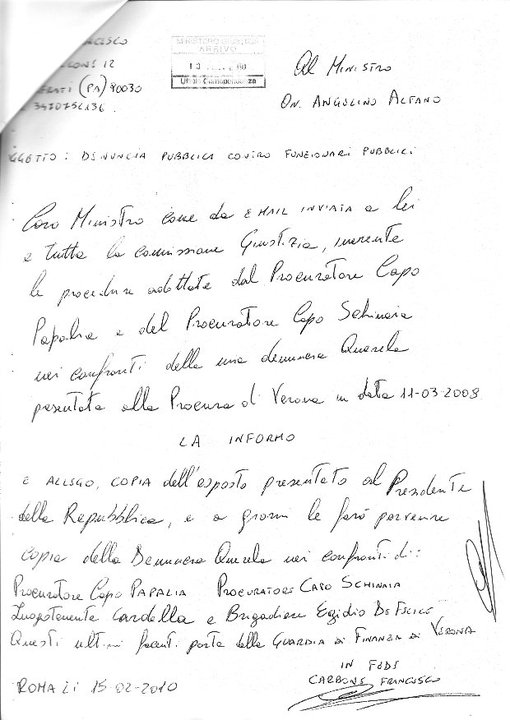 NCISCO
12
(PA) 90030
Al MINISTRO
ARRIVO
On. ANGELINO ALFANO
GGETTO: DENUNCIA PUBBLICA CONTRO FUNZIONARI PUBBLICI
Caro Ministro come da EMAIL INVIATA a lei
e tutta la commissione Giustizia, inerente
le procedure adottate dal Procuratore Capo
Papalia e del Procuratore Capo Schinaia
nei confronti della una denuncia Querela
presentata alla Procura di Verona in data 11-03-2009
LA INFORMO
E ALLEGO, COPIA dell'esposto presentato al Presidente
della Repubblica, e a giorni le farò pervenire
copia della Denuncia Querela nei confronti di:
Procuratore Capo PAPALIA PROCURATORE CAPO SCHINAIA
Luogotenente Cardella e Brigadiere Egidio
Questi ultimi facenti parte della GUARDIA di FINANZA di VERONA
IN FEDE
CARBONE FRANCESCO
ROMA Li 15-02-2010